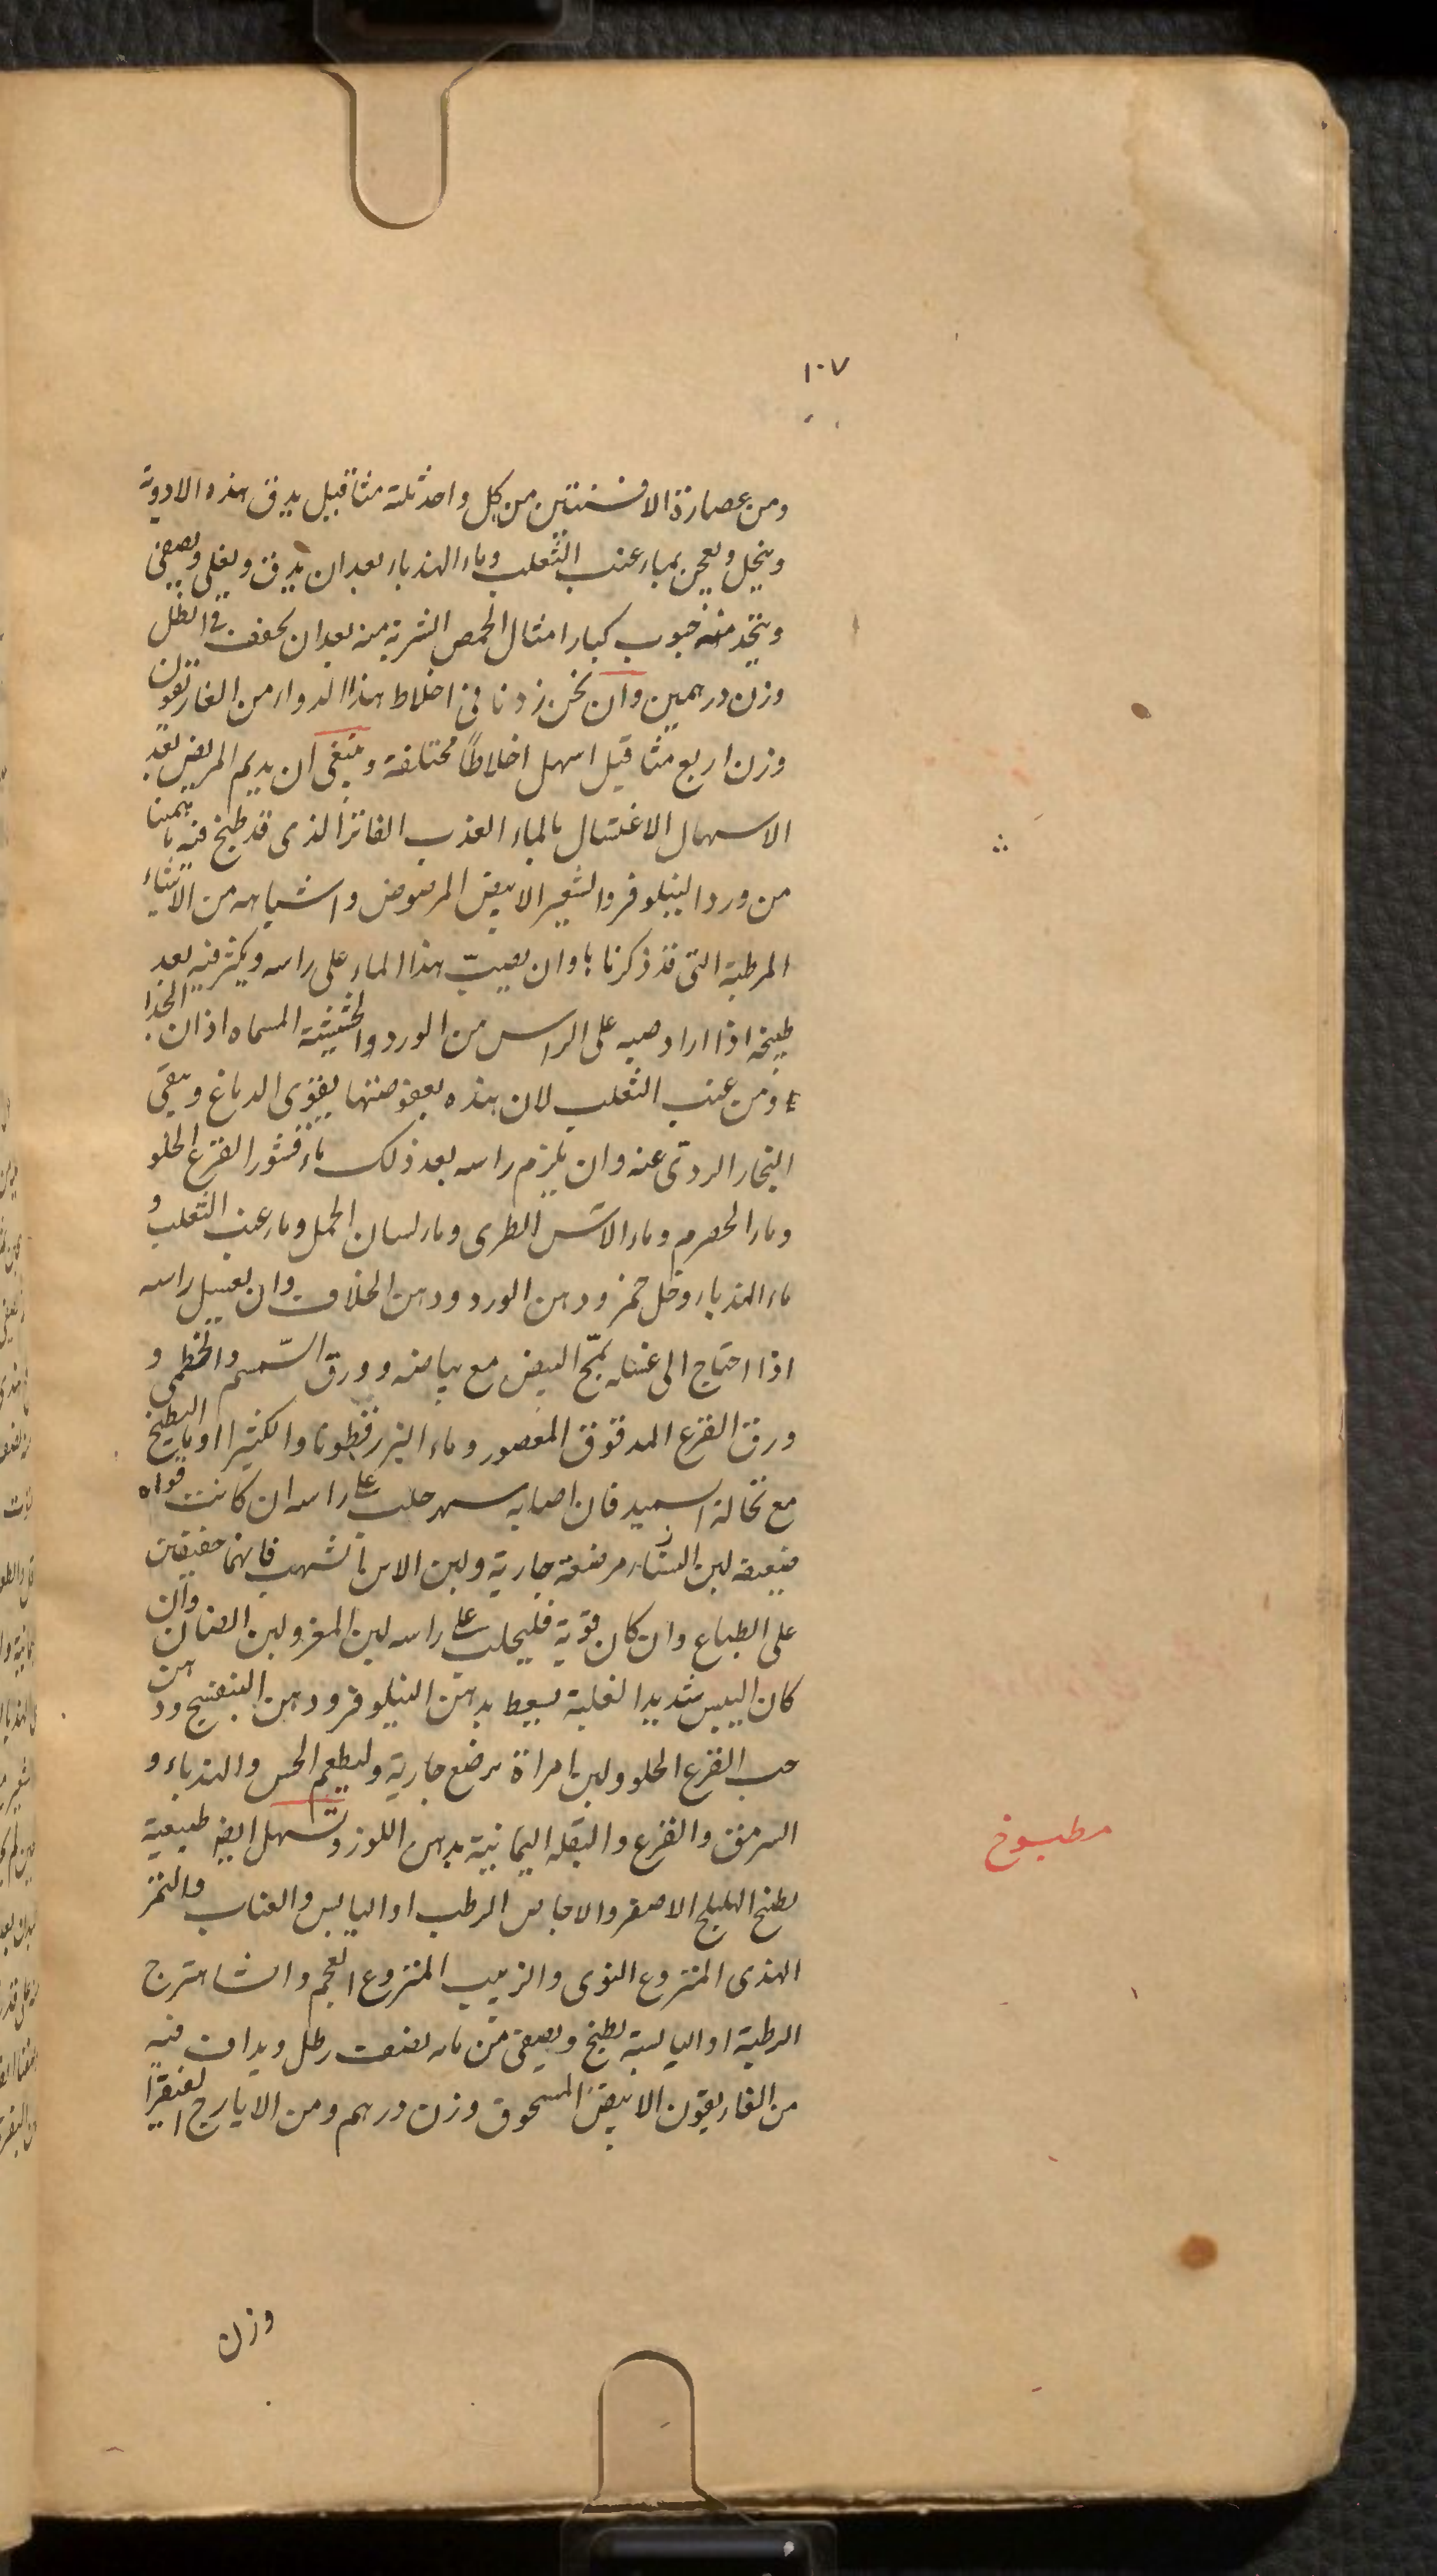 ١٠٧
ومن عصارة الافسنتين من كل واحد ثلثة مثاقيل يدق هذه الادوية
وينخل ويعجن بماء عنب الثعلب وماء الهندباء بعد ان يدق ويغلى ويصفى
ويتخذ منه حبوب كبار امثال الحمص الشربة منه بعد ان يجفف فى الظل
وزن درهمين وان نحن زدنا فى اخلاط هذا الدواء من الغاريقون
وزن اربع مثاقيل اسهل اخلاطًا مختلفة وينبغى ان يديم المريض بعد
الاسهال الاغتسال بالماء العذب الفاتر الذى قد طبخ فيه
من ورد النيلوفر والشعير الابيض المرضوض واشباهه من الاشياء
المرطبة التى قد ذكرناها وان يصبّ هذا الماء على راسه ويكثر فيه بعد
طبخه اذا اراد صبه على الراس من الورد والحشيشة المسماه اذان الجدا
ومن عنب الثعلب لان هذه بعفوصتها يقوى الدماغ وينقى
البخار الردى عنه وان يلزم راسه بعد ذلك ماء قشور القرع الحلو
وماء الحصرم وماء الآس الطرى وماء لسان الحمل وماء عنب الثعلب و
ماء الهندباء وخل خمر ودهن الورد ودهن الخلاف وان يغسل راسه
اذا احتاج الى غسله بمحّ البيض مع بياضه وورق السّمسم والخطمى و
ورق القرع المدقوق المعصور وماء البزر قطونا والكثيرا او بالبطيخ
مع نخالة السميد فان اصابه سهر حلب على راسه ان كانت قواه
ضعيفة لبن النساء مرضعة جارية ولبن الاتن فانهما خفيفين
على الطباع وان كان قوية فليحلب على راسه لبن المعز ولبن الضان وان
كان اليبس شديد الغلبة يسعط بدهن النيلوفر ودهن البنفسج ودهن
حب القرع الحلو ولبن امراة ترضع جارية وليطعم الخس والهندباء و
السرمق والقرع والبقله اليمانية بدهن اللوز وتسهل ايضا طبيعية
بطبخ الهليلج الاصفر والاجاص الرطب او اليابس والعناب والتمر
الهندى المنزوع النوى والزبيب المنزوع العجم والشاهترج
الرطبة او اليابسة يطبخ ويصفى من مائه نصف رطل ويداف فيه
من الغاريقون الابيض المسحوق وزن درهم ومن الايارج الفيقرا
مطبوخ
وزن